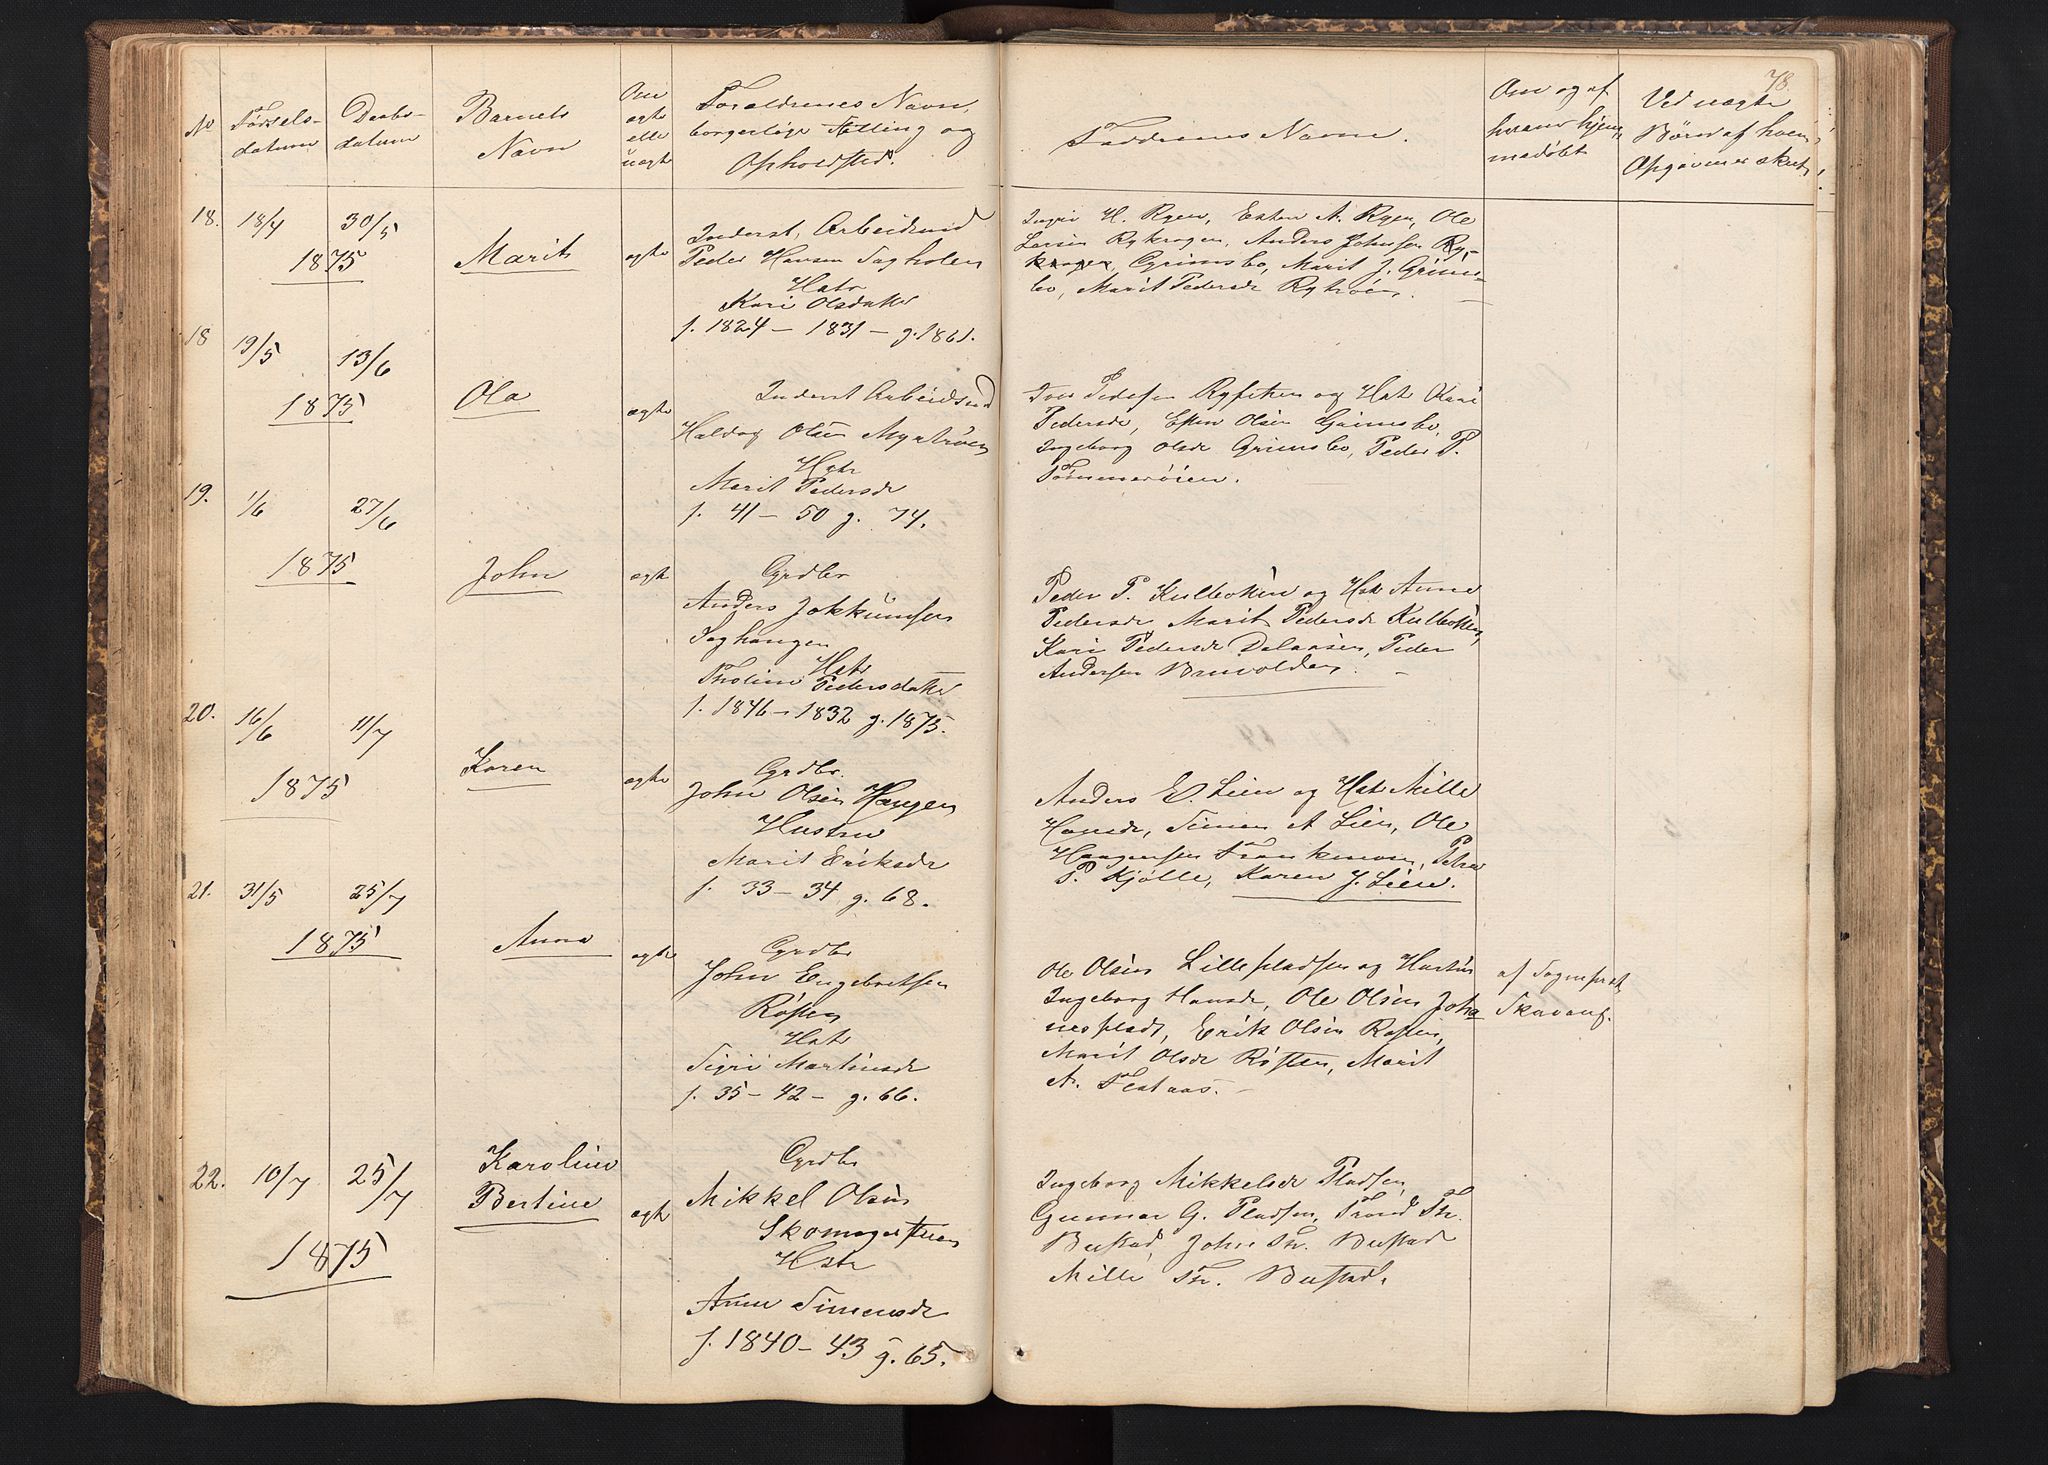 78.
No
Fødsels-
datum
Daabs-
datum
Barnets
Navn
Om
ægte
elle
uægt
Forældrenes Navn
borgerlige Stilling og
Opholdsted.
Faddernes Navne.
Om og af
hvem hjem-
medøbt
Ved uægte
Børn af hvem
Opgaven er skeet
18. 18/4 30/5
1875
Marit
ægte
Inderst, Arbeidsmd
Peder Hansen Sagholen
Hstr
Kari Olsdatter
f. 1824 - 1831 - g. 1861.
Ingri H. Ryen, Esten A. Ryen, Ole
Larsen Rykrogen, Anders Johnsen Ry-
krogen, Grimsbo, Marit J. Grims-
bo, Marit Pedersdr Rytrøen.
18 19/5 13/6
1875
Ola
ægte
Inderst Arbeidsmd
Haldog Olsen Myrtrøen
Hstr
Marit Pedersdr
f. 41 - 50 g. 74.
Iver Pedersen Ryfetten og Hst Kari
Pedersdr, Esten Olsen Grimsbo,
Ingeborg Olsdr Grimsbo, Peder P.
Tømmerøien.
19. 1/6 27/6
1875
John
ægte
Grdbr
Anders Jokkumsen
Saghaugen
Hstr
Tholine Pedersdatter
f. 1846 - 1832 g. 1875.
Peder P. Kulbotten og Hst Anne
Pedersdr Marit Pedersdr Kulbotten,
Kari Pedersdr Dalaasen, Peder
Andersen Bruvolden.
20. 16/6 11/7
1875
Karen
ægte
Grdbr.
John Olsen Haugen
Hustru
Marit Eriksdr
f. 33 - 34 g. 68.
Anders E. Lien og Hst Mille
Hansdr, Simen A Lien, Ole
Haagensen Frankmoen, Petra
P. Kjølle, Karen J. Lien.
21. 31/5 25/7
1875
Anna
ægte
Grdbr
John Engebretsen
Røsten
Hstr
Sigri Martinusdr
f. 35 - 42 - g. 66.
Ole Olsen Lillepladsen og Hustru
Ingeborg Hansdr, Ole Olsen Joha
nesplads, Erik Olsen Røsten,
Marit Olsdr Røsten, Marit
A. Flataas.
af Sognepræst
22. 10/7 25/7
1875
Karoline
Bertine
ægte
Grdbr
Mikkel Olsen
Skomagerstuen
Hstr
Anne Simensdr
f. 1840 - 43 g. 65.
Ingeborg Mikkelsdr Pladsen,
Gunnar G. Pladsen, Trond Th.
Bustad, John Th. Bustad
Mille Th. Bustad.